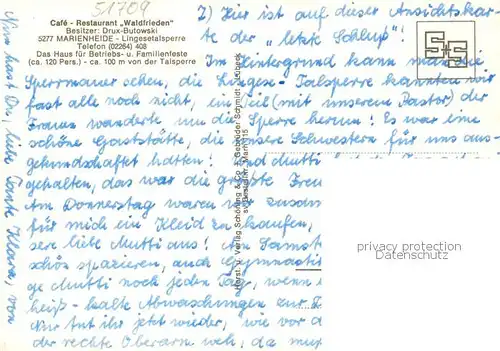 51709
Café - Restaurant „Waldfrieden"
Besitzer: Drux-Butowski
5277 MARIENHEIDE - Lingesetalsperre
Telefon (02264) 408
Das Haus für Betriebs- u. Familienfeste
(ca. 120 Pers.) - ca. 100 m von der Talsperre
2) Hier ist auf dieser Ansichtskar-
te der "letzte Schluß"!
Im Hintergrund kann man die
Sperrmauer sehen, die Lingese-Talsperre kannten wir
fast alle noch nicht, ein Teil (mit unserem Pastor) der
Frauen wanderte um die Sperre herum! Es war eine
schöne Gaststätte, die unsere Schwestern für uns aus-
gekundschaftet hatten! Und Mutti
gehalten, das war die größte Freu
Am Donnerstag waren wir zusam
für mich ein Kleid zu kaufen,
sere liebe Mutti aus! Samst
schön spazieren, auch Gymnasti
Mutti noch jeden Tag, wenn
heiß-kalte Abwaschungen zur
Nur tut ihr jetzt wieder, wie vor
der rechte Oberarm weh, da mu
Nun hast Du, liebe Tante Klara, von
Horst u. Verlag Schöning & Co + Gebrüder Schmidt, Lübeck
privacy protection
Datenschutz